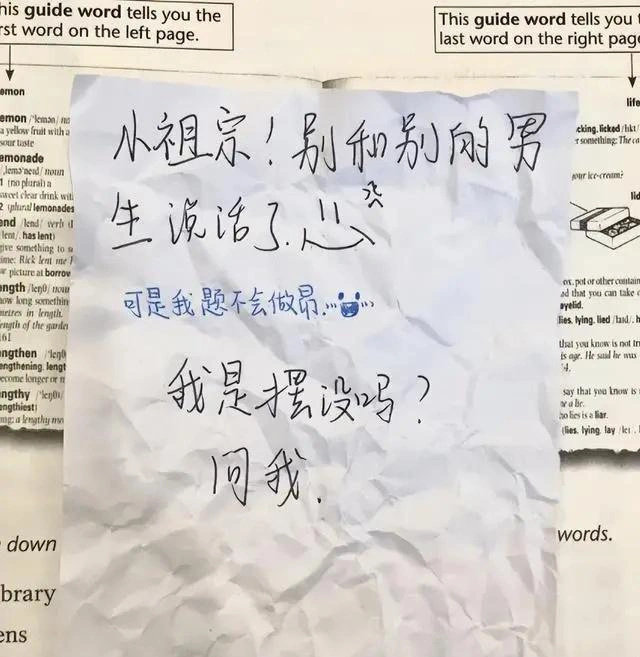 his guide word tells you the
rst word on the left page.
This guide word tells you t
last word on the right page
emon
emon /'lemən/ no
a yellow fruit with a
sour taste
emonade
/ˌlemə'neɪd/ noun
1 (no plural) a
sweet clear drink wit
2 (plural lemonades
end /lend/ verb (l
lent/, has lent)
give something to s
ime: Rick lent me
picture at borrow
ength /leŋθ/ noun
how long something
metres in length.
ength of the garde
161
engthen /'leŋθ
engthening, lengt
become longer or
engthy /'leŋθi/
engthiest)
ng: a lengthy me
小祖宗！别和别的男
生说话了.
可是我题不会做昂
我是摆没吗？
问我.
life
cking, licked /lɪkt/
r something: The ca
your ice-cream?
lid
ox, pot or other contain
d that you can take
eyelid.
lies, lying, lied /laɪd/, h
that you know is not tr
is age. He said he was
4.
say that you know is
e a lie.
ho lies is a liar.
(lies, lying, lay /leɪ/,
down
brary
ens
words.